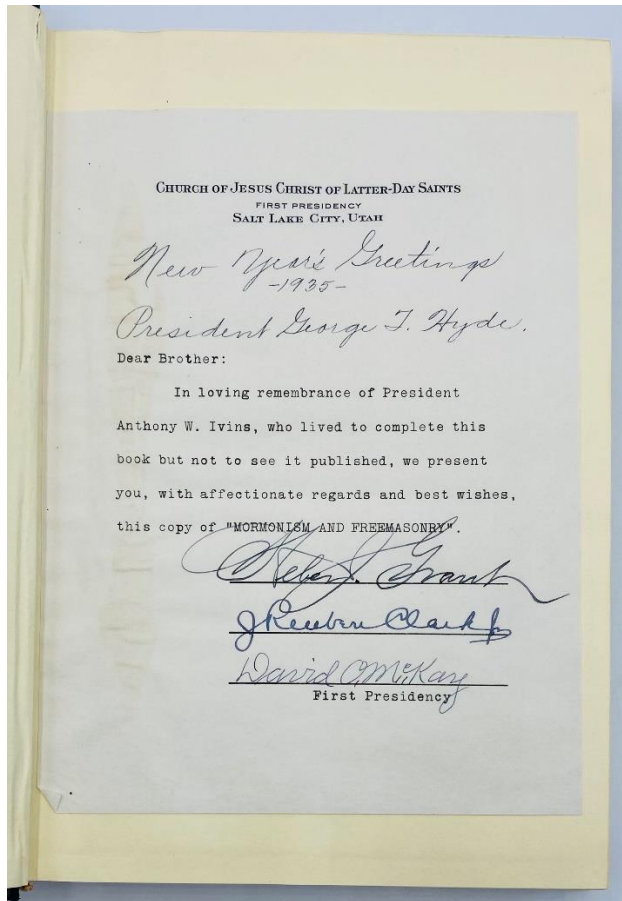 CHURCH OF JESUS CHRIST OF LATTER-DAY SAINTS
FIRST PRESIDENCY
SALT LAKE CITY, UTAH
New Year's Greetings
-1935-
President George T. Hyde.
Dear Brother:
In loving remembrance of President
Anthony W. Ivins, who lived to complete this
book but not to see it published, we present
you, with affectionate regards and best wishes,
this copy of "MORMONISM AND FREEMASONRY".
Heber J. Grant
J Reuben Clark Jr
David O. McKay
First Presidency